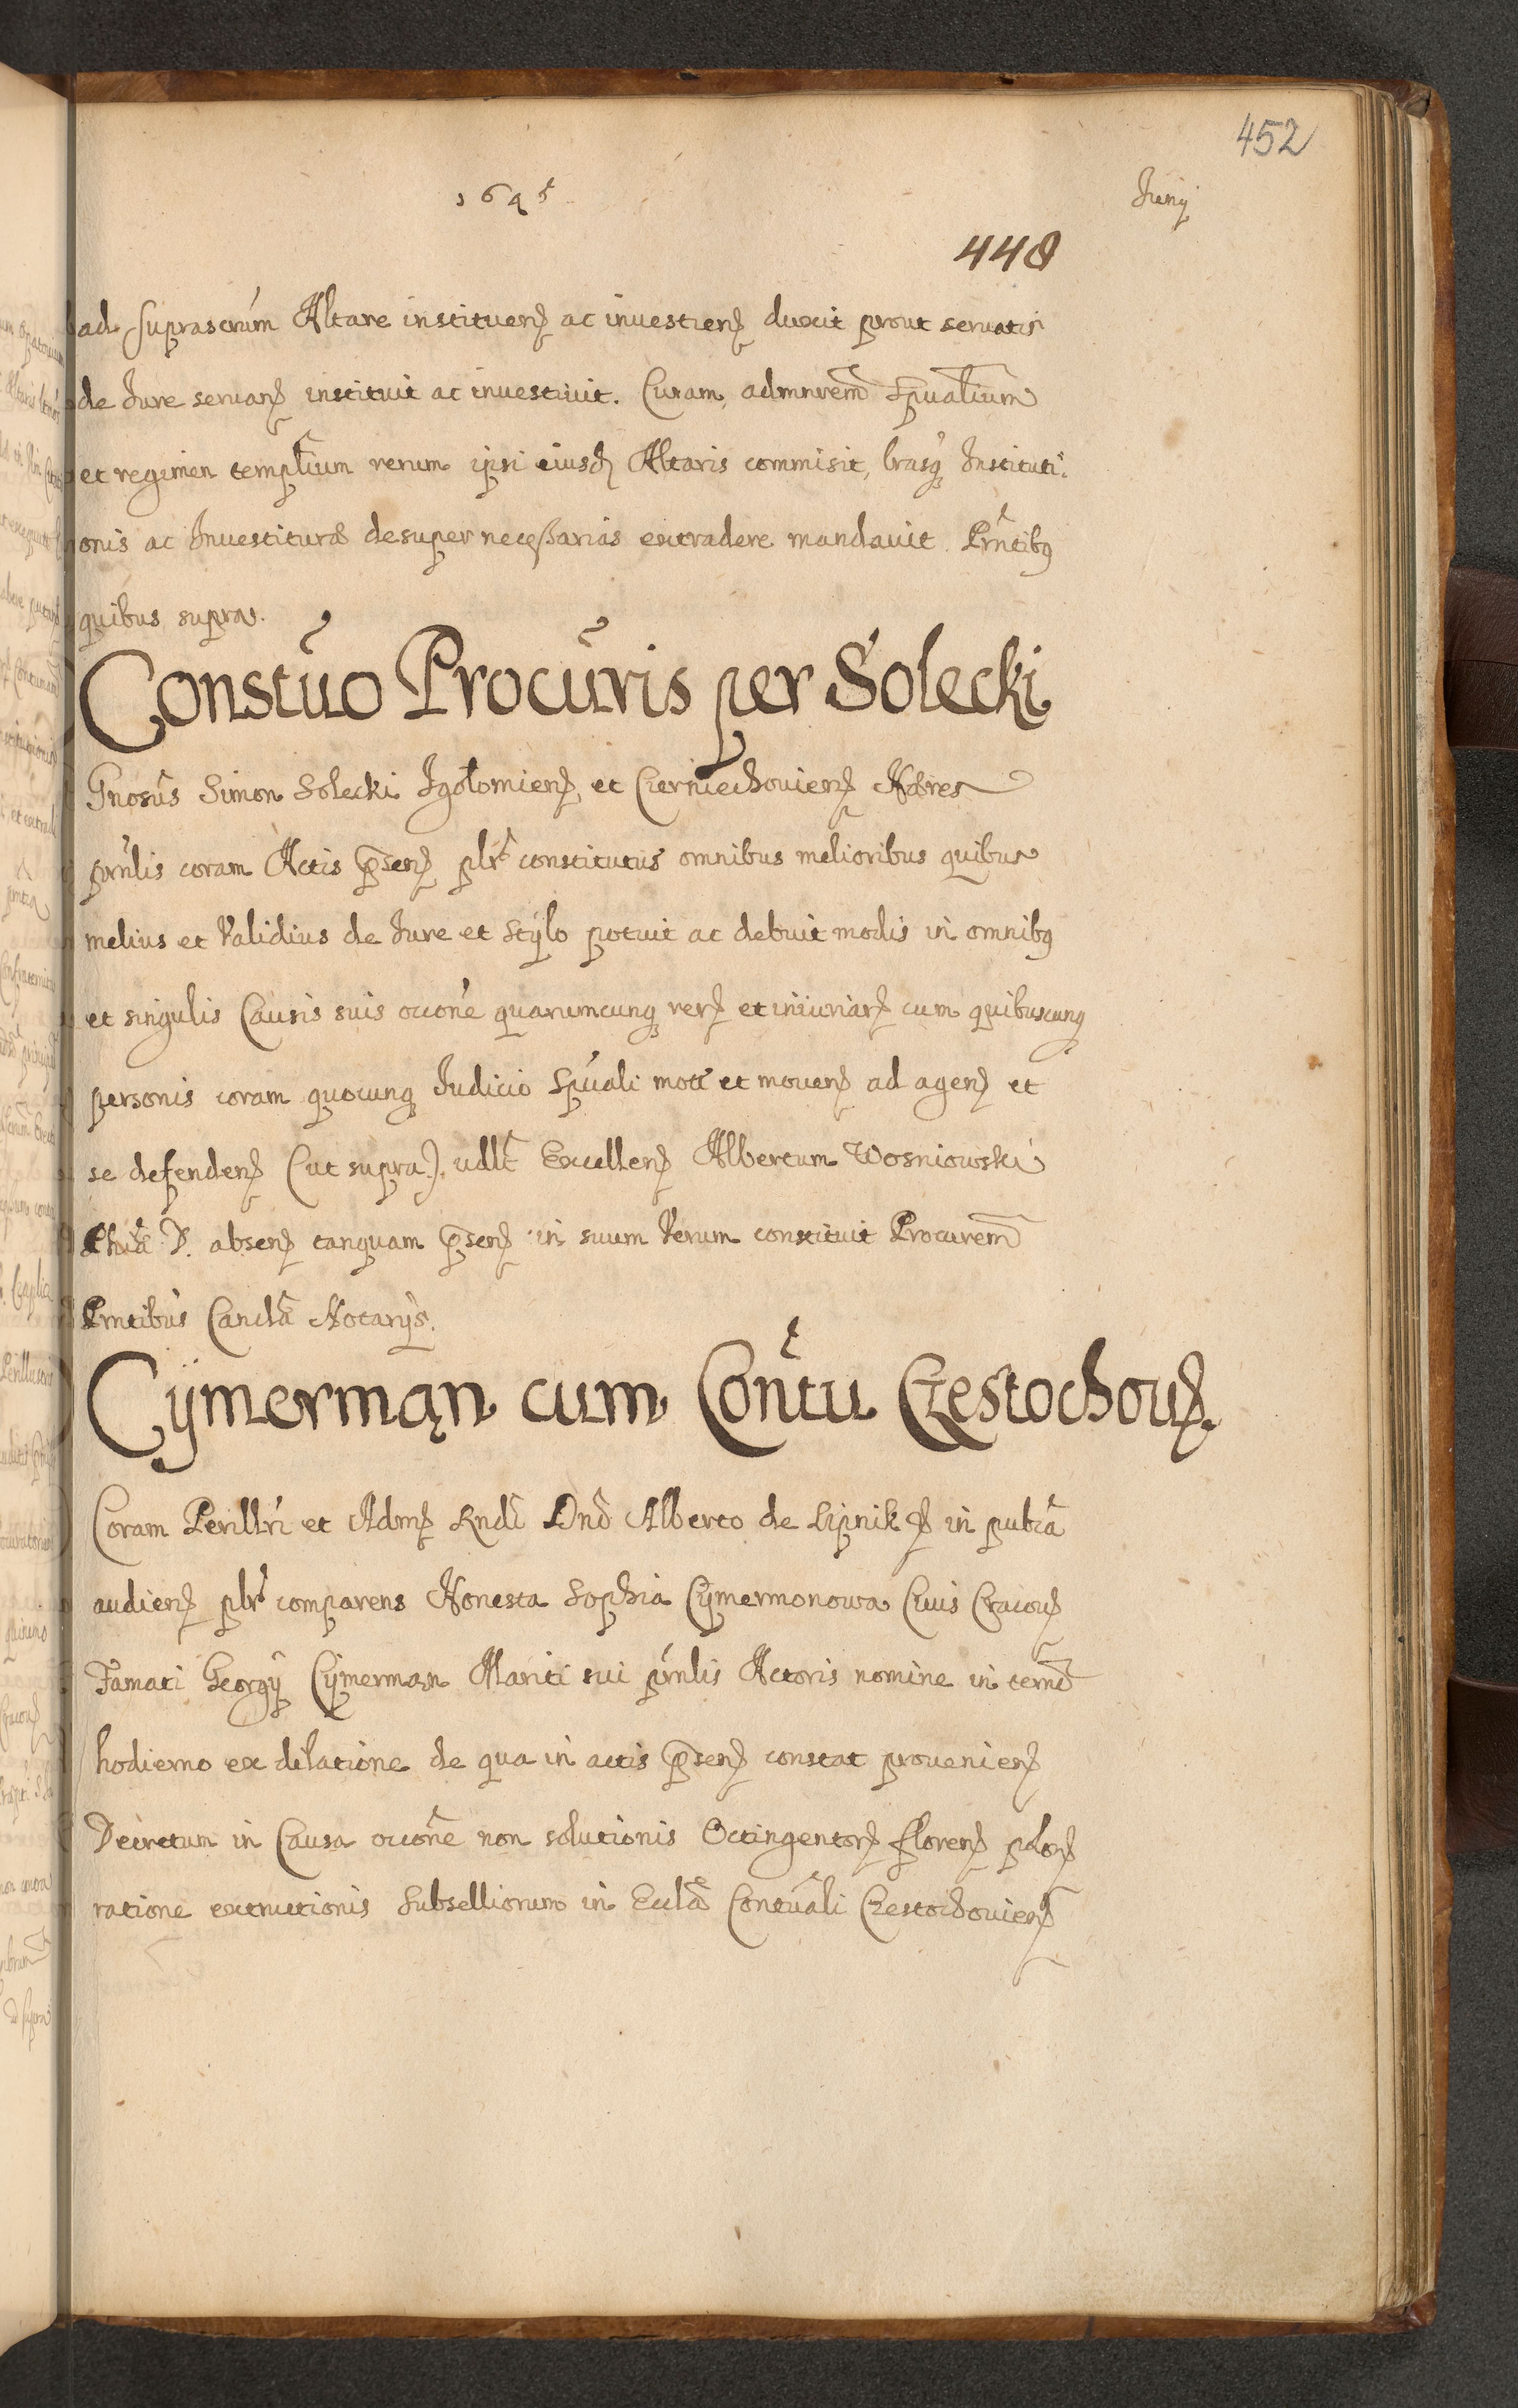 452
1645
Juny
448
ad suprascrũm Altare instituenʒ ac inuestienʒ duxit prout seruatis
de Jure seruanʒ instituit ac inuestiuit. Curam, admnrem̃ Spualium
et regimen templium rerum ipsi eiusdʒ Altaris commisit, lrasqʒ Instituti:
onis ac Inuestituræ desuper necessarias extradere mandauit. Prñtibꝯ
quibus supra.
Constũo Procũris per Solecki
Gnosus Simon Solecki Igołomienʒ et Czerniechouienʒ Hæres
prñlis coram Actis p̃senʒ plr̃ constitutus omnibus melioribus quibus
melius et Validius de Jure et Stÿlo potuit ac debuit modis in omnibꝯ
et singulis Causis suis occone quarumcunqʒ rerʒ et iniuriarʒ cum quibuscunqʒ
personis coram quocunqʒ Iudicio Spuali mot̃ et mouenʒ ad agenʒ et
se defendenʒ (ut supra). udlt̃ Excellenʒ Albertum Wosniowski
Phiæ D. absenʒ tanquam p̃senʒ in suum Verum constituit Procurem̃
Prntibus Canclæ Notarÿs.
Cÿmermąn cum Cõntu Czestochouʒ.
Coram Perillri et Admʒ Rndi Dno Alberto de Lipnik ʒ in publca
audienʒ plr̃ comparens Honesta Sophia Cÿmermonowa Ciuis Cracouʒ
Famati Georgÿ Cÿmermąn Mariti sui prñlis Actoris nomine in termõ
hodierno ex dilatione de qua in actis p̃senʒ constat prouenienʒ
Decretum in Causa occone non solutionis Octingentorʒ florenʒ polonʒ
ratione extructionis Subselliorum in Eccla Contuali Czestochouienʒ